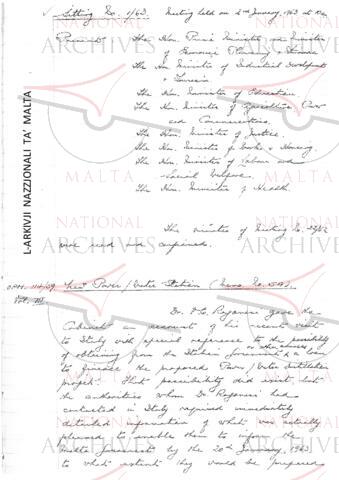 Sitting No. 1/63. Meeting held on 2nd January, 1963 at 10
Present: The Hon. Prime Minister and Minister
of Economic Planning and Finance
The Hon Minister of Industrial Development
& Tourism
The Hon. Minister of Education.
The Hon. Minister of Agriculture, Power
and Communications.
The Hon. Minister of Justice.
The Hon. Minister of Works & Housing.
The Hon. Minister of Labour and
Social Welfare.
The Hon. Minister of Health.
The minutes of Meeting No.
were read and confirmed.
Vol. III
New Power/Water Station (Memo No.
Dr. gave the
Cabinet an account of his recent visit
to Italy with special reference to the possibility
of obtaining from the Italian Government a loan
or other sources
to finance the proposed Power/Water Distillation
project. That possibility did exist, but
the authorities whom Dr. had
contacted in Italy required immediately
detailed information of what was actually
planned to enable them to inform the
Malta Government by the 20th January, 1963
to what extent they would be prepared
L-ARKIVJI NAZZJONALI TA' MALTA
NATIONAL ARCHIVES MALTA